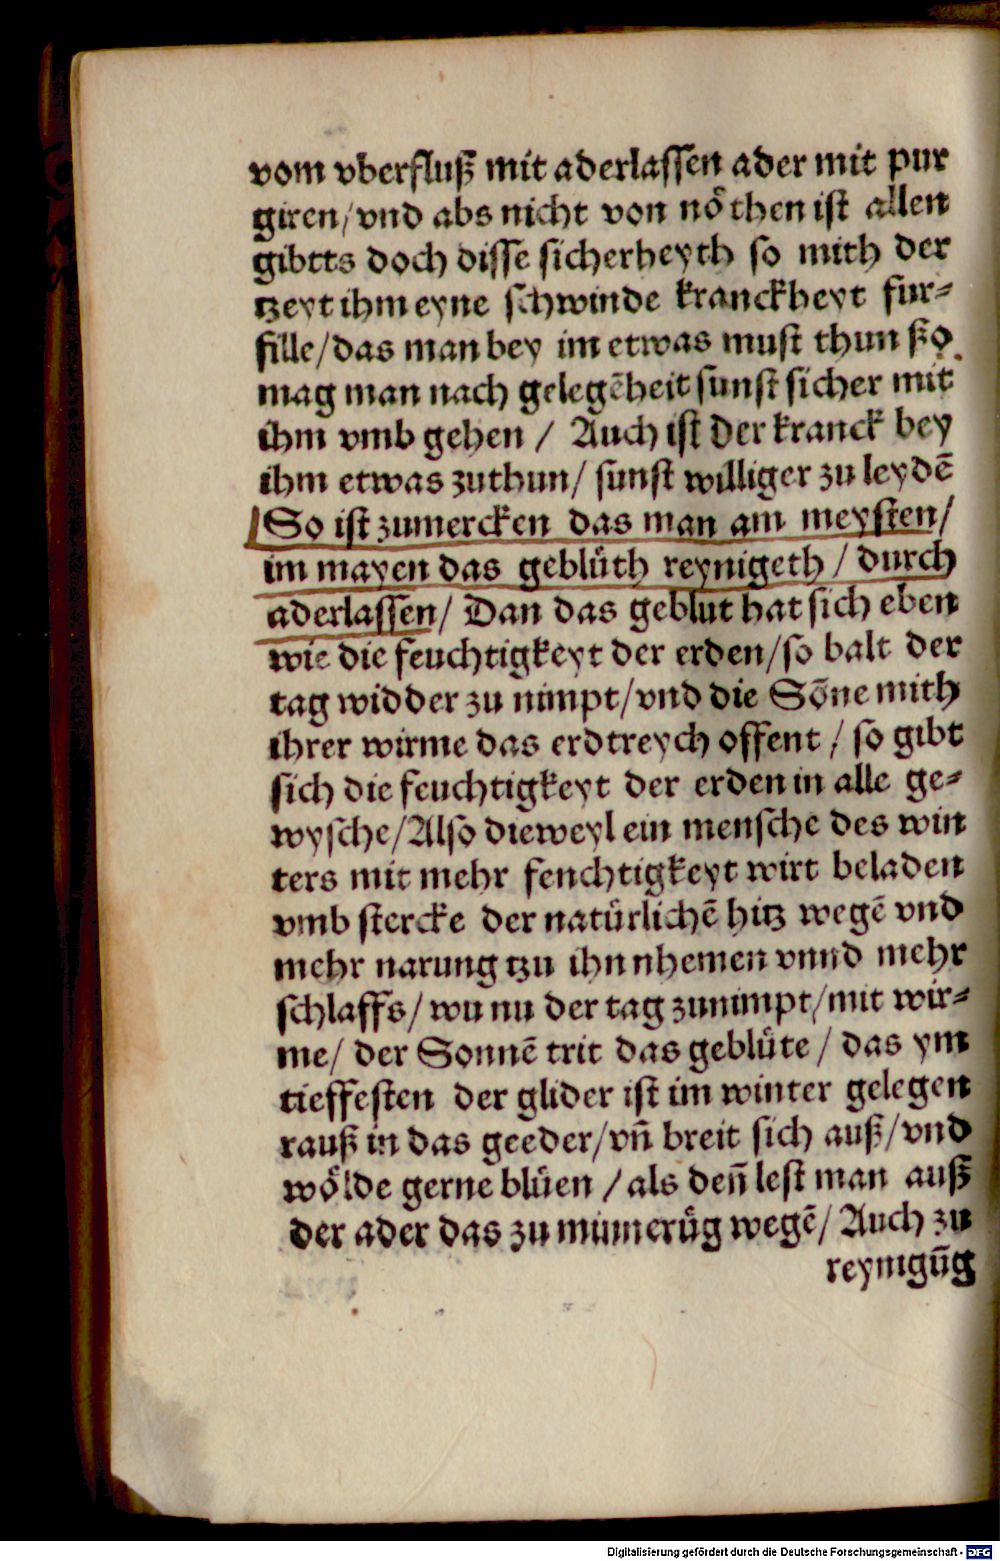 vom vberfluß mit aderlassen ader mit pur
giren/vnd abs nicht von nöthen ist allen
gibtts doch disse sicherheyth so mith der
tzeyt ihm eyne schwinde kranckheyt fur-
fille/das man bey im etwas must thun ßo
mag man nach gelegēheit sunst sicher mit
ihm vmb gehen / Auch ist der kranck bey
ihm etwas zuthun/ sunst williger zu leydē
So ist zumercken das man am meysten/
im mayen das geblüth reynigeth / durch
aderlassen/ Dan das geblut hat sich eben
wie die feuchtigkeyt der erden/so balt der
tag widder zu nimpt/vnd die Sōne mith
ihrer wirme das erdtreych offent / so gibt
sich die feuchtigkeyt der erden in alle ge-
wysche/Also dieweyl ein mensche des win
ters mit mehr fenchtigkeyt wirt beladen
vmb stercke der natürlichē hitz wegē vnd
mehr narung tzu ihn nhemen vnnd mehr
schlaffs/ wu nu der tag zunimpt/mit wir-
me/ der Sonnē trit das geblüte / das ym
tieffesten der glider ist im winter gelegen
rauß in das geeder/vñ breit sich auß/vnd
wölde gerne blüen / als deñ lest man auß
der ader das zu minnerūg wegē/ Auch zu
reynigūg
Digitalisierung gefördert durch die Deutsche Forschungsgemeinschaft - DFG